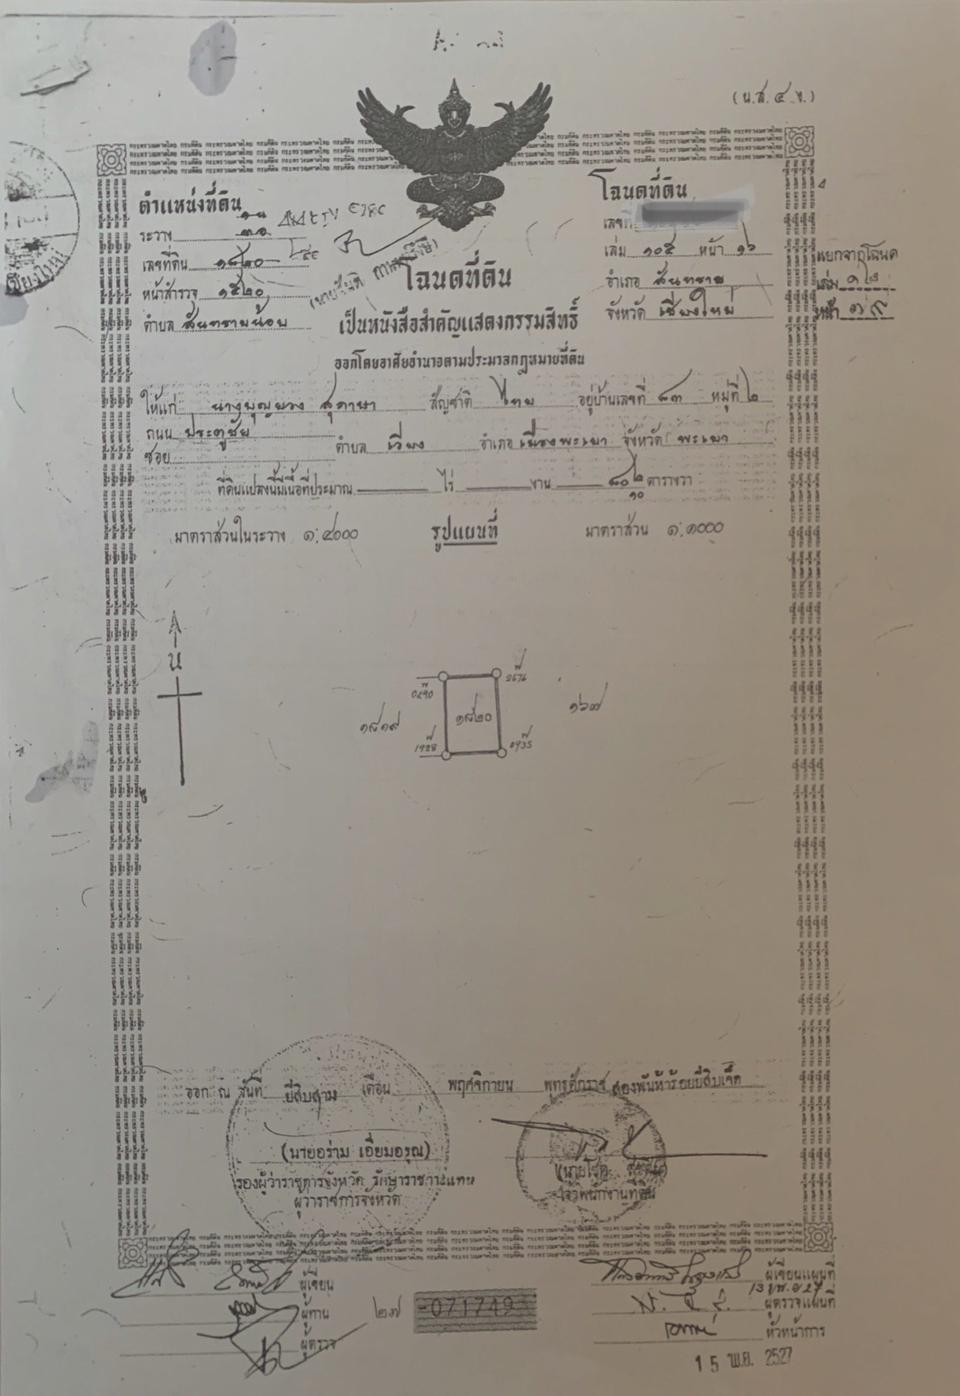 (น.ส. ๔ จ.)
ตำแหน่งที่ดิน
ระวาง
เลขที่ดิน ๑๘๒๐
หน้าสำรวจ ๑๕๒๐
ตำบล สันทรายน้อย
โฉนดที่ดิน
เลขที่
เล่ม ๑๐๕ หน้า ๒๖
อำเภอ สันทราย
จังหวัด เชียงใหม่
แยกจากโฉนด
เล่ม
หน้า ๓๙
โฉนดที่ดิน
เป็นหนังสือสำคัญแสดงกรรมสิทธิ์
ออกโดยอาศัยอำนาจตามประมวลกฎหมายที่ดิน
ให้แก่ นางบุญยวง สุภาษา สัญชาติ ไทย อยู่บ้านเลขที่ ๘๓ หมู่ที่ ๒
ถนน ประตูชัย
ซอย ตำบล เวียง อำเภอ เมืองพะเยา จังหวัด พะเยา
ที่ดินแปลงนี้มีเนื้อที่ประมาณ ไร่ งาน ๘๐ ๒/๑๐ ตารางวา
มาตราส่วนในระวาง ๑:๔๐๐๐ รูปแผนที่ มาตราส่วน ๑:๑๐๐๐
น
๑๘๑๙ ๑๘๒๐ ๑๖๗
ออก ณ วันที่ ยี่สิบสาม เดือน พฤศจิกายน พุทธศักราช สองพันห้าร้อยยี่สิบเจ็ด
(นายอร่าม เอี่ยมอรุณ)
รองผู้ว่าราชการจังหวัด รักษาราชการแทน
ผู้ว่าราชการจังหวัด
เจ้าพนักงานที่ดิน
ผู้เขียน
ผู้ทาน
ผู้ตรวจ
๒๗ -0717493
ผู้เขียนแผนที่
ผู้ตรวจแผนที่
หัวหน้าการ
15 พ.ย. 2527